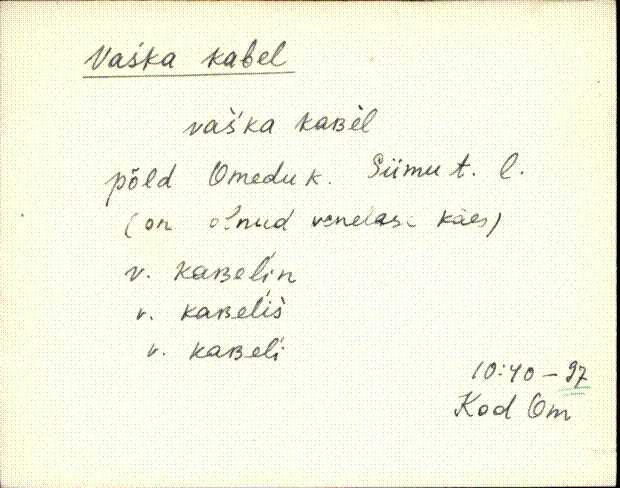 Vaška kabel
vaška kaʙèl
põld Omedu k. Siimu t. l.
(on olnud venelase käes)
v. kaʙelin
v. kaʙeliš
v. kaʙeli
10:40 – 97
Kod Om